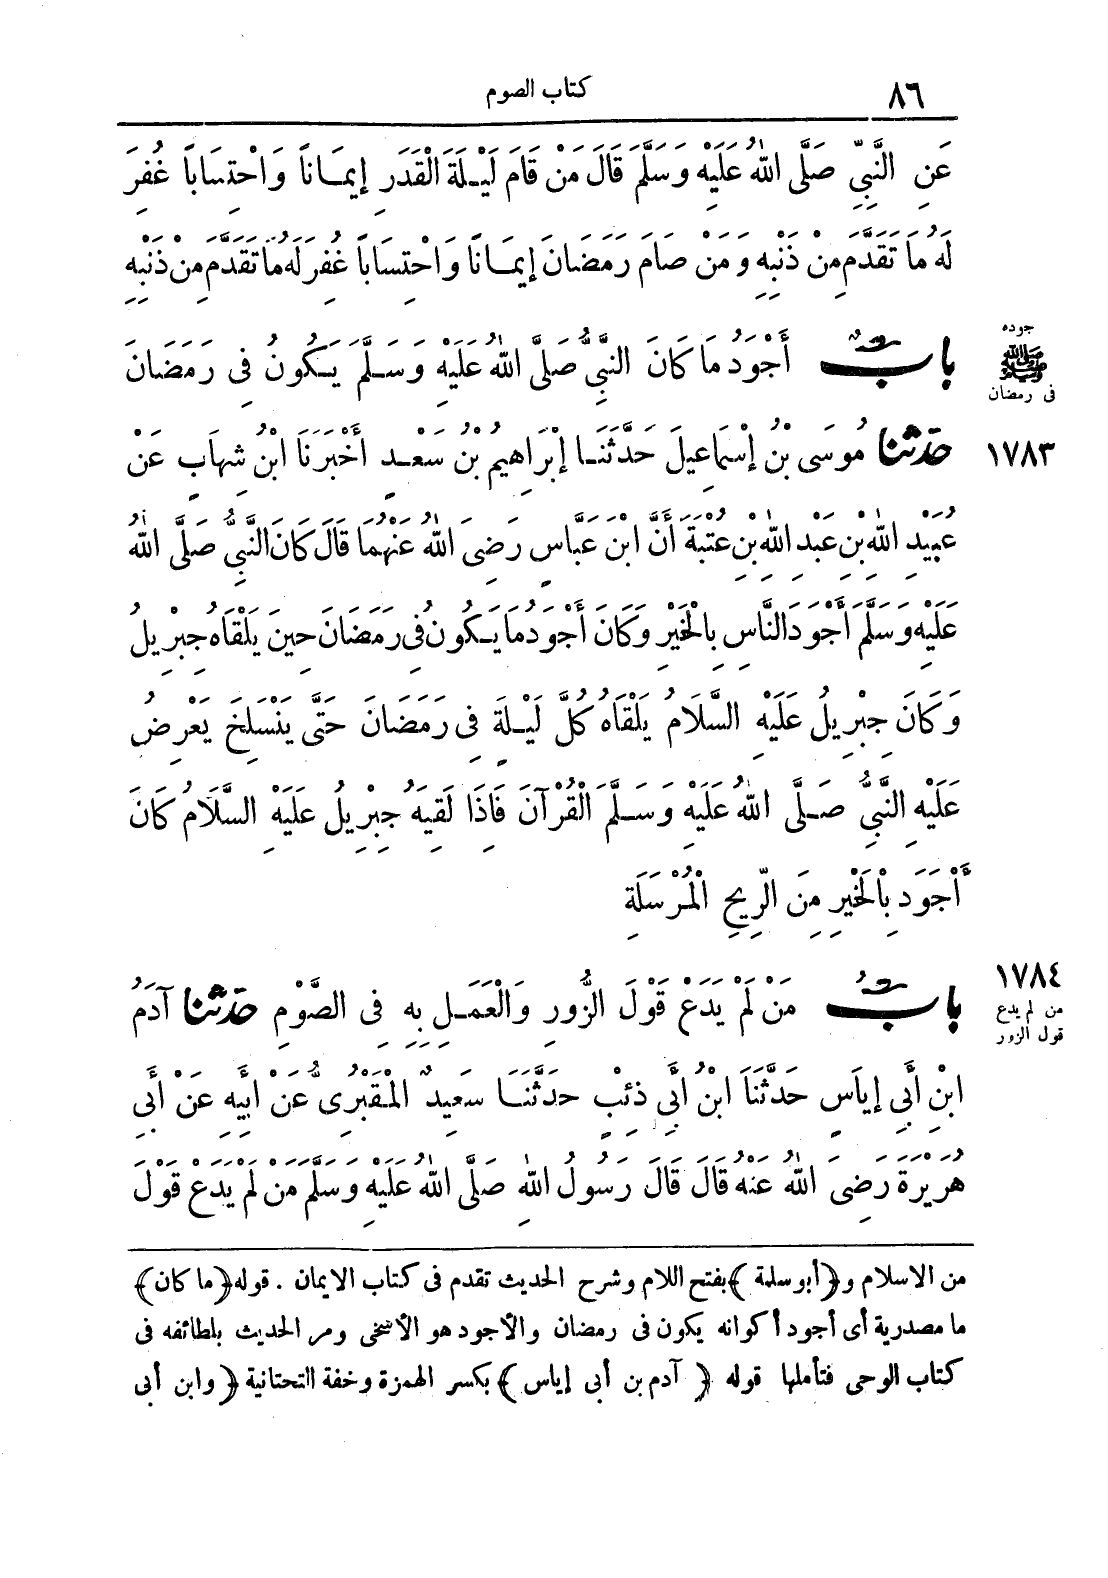 ٨٦ كتاب الصوم
عَنِ النَّبِيِّ صَلَّى اللهُ عَلَيْهِ وَسَلَّمَ قَالَ مَنْ قَامَ لَيْلَةَ الْقَدَرِ إِيمَانًا وَاحْتِسَابًا غُفِرَ
لَهُ مَا تَقَدَّمَ مِنْ ذَنْبِهِ وَمَنْ صَامَ رَمَضَانَ إِيمَانًا وَاحْتِسَابًا غُفِرَ لَهُ مَا تَقَدَّمَ مِنْ ذَنْبِهِ
جوده
ﷺ
فى رمضان
بابٌ أَجْوَدُ مَا كَانَ النَّبِيُّ صَلَّى اللهُ عَلَيْهِ وَسَلَّمَ يَكُونُ فِى رَمَضَانَ
١٧٨٣
حَدَّثَنَا مُوسَى بْنُ إِسْمَاعِيلَ حَدَّثَنَا إِبْرَاهِيمُ بْنُ سَعْدٍ أَخْبَرَنَا ابْنُ شِهَابٍ عَنْ
عُبَيْدِ اللهِ بْنِ عَبْدِ اللهِ بْنِ عُتْبَةَ أَنَّ ابْنَ عَبَّاسٍ رَضِىَ اللهُ عَنْهُمَا قَالَ كَانَ النَّبِيُّ صَلَّى اللهُ
عَلَيْهِ وَسَلَّمَ أَجْوَدَ النَّاسِ بِالْخَيْرِ وَكَانَ أَجْوَدُ مَا يَكُونُ فِى رَمَضَانَ حِينَ يَلْقَاهُ جِبْرِيلُ
وَكَانَ جِبْرِيلُ عَلَيْهِ السَّلَامُ يَلْقَاهُ كُلَّ لَيْلَةٍ فِى رَمَضَانَ حَتَّى يَنْسَلِخَ يَعْرِضُ
عَلَيْهِ النَّبِيُّ صَلَّى اللهُ عَلَيْهِ وَسَلَّمَ الْقُرْآنَ فَاذَا لَقِيَهُ جِبْرِيلُ عَلَيْهِ السَّلَامُ كَانَ
أَجْوَدَ بِالْخَيْرِ مِنَ الرِّيحِ الْمُرْسَلَةِ
١٧٨٤
من لم يدع
قول الزور
بابُ مَنْ لَمْ يَدَعْ قَوْلَ الزُّورِ وَالْعَمَلِ بِهِ فِى الصَّوْمِ حَدَّثَنَا آدَمُ
ابْنُ أَبِى إِيَاسٍ حَدَّثَنَا ابْنُ أَبِى ذِئْبٍ حَدَّثَنَا سَعِيدٌ الْمَقْبُرِىُّ عَنْ ابِيهِ عَنْ أَبِى
هُرَيْرَةَ رَضِىَ اللهُ عَنْهُ قَالَ قَالَ رَسُولُ اللهِ صَلَّى اللهُ عَلَيْهِ وَسَلَّمَ مَنْ لَمْ يَدَعْ قَوْلَ
من الاسلام و﴿أبو سلمة﴾ بفتح اللام وشرح الحديث تقدم فى كتاب الايمان . قوله ﴿ما كان﴾
ما مصدرية أى أجود أكوانه يكون فى رمضان والأجود هو الأسخى ومر الحديث بلطائفه فى
كتاب الوحى فتأملها قوله ﴿آدم بن أبى إياس﴾ بكسر الهمزة وخفة التحتانية ﴿وابن أبى